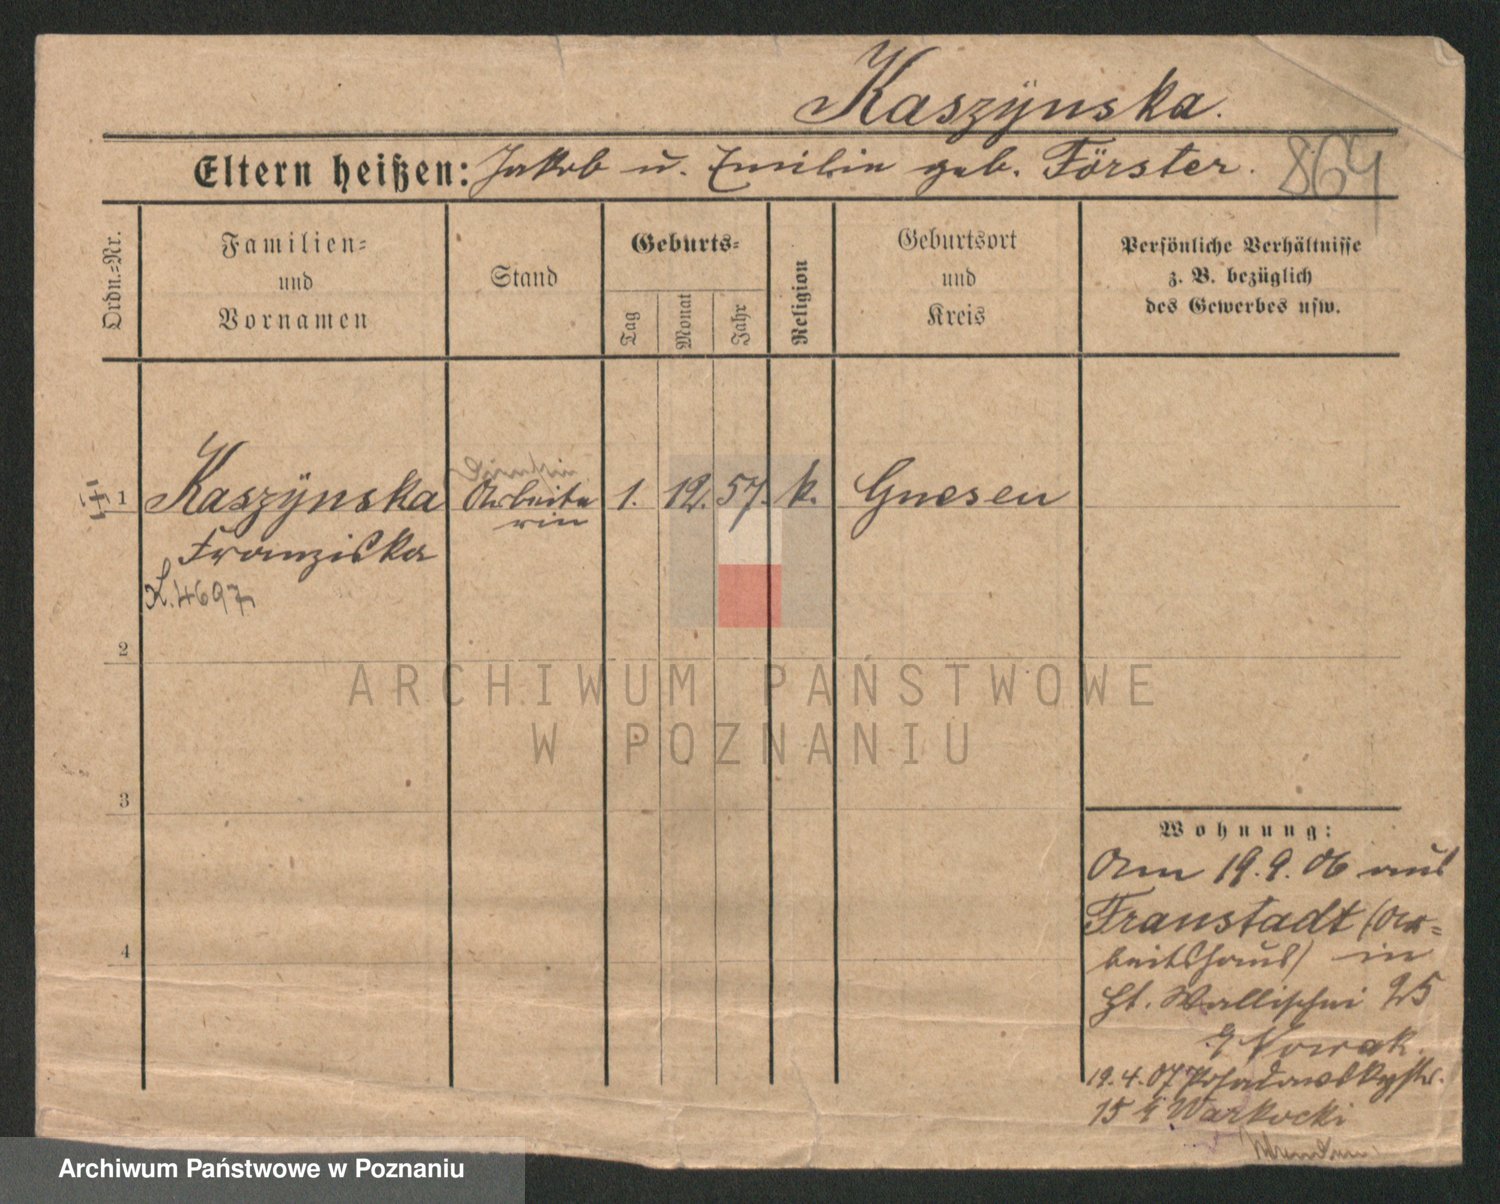 Kaszÿnska.
Eltern heißen: Jakob u. Emilie geb. Förster.
864
Ordn.=Nr.
Familien=
und
Vornamen
Stand
Geburts=
Tag
Monat
Jahr
Religion
Geburtsort
und
Kreis
Persönliche Verhältnisse
z. B. bezüglich
des Gewerbes usw.
1 Kaszÿnska Arbeite 1. 12. 57. k. Gnesen
rin
Franziska
K. 4697
2
ARCHIWUM PAŃSTWOWE
W POZNANIU
3
Wohnung:
Am 19.9.06 aus
Fraustadt (Ar=
beitshaus) in
hr. Wallischei 25
Nowak.
19.4.07 Posadowskystr.
15 Warkocki
4
Archiwum Państwowe w Poznaniu